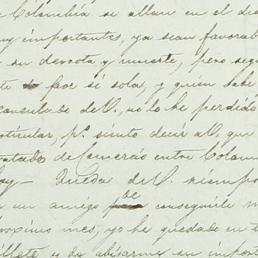 Colombia se allan en el des
uy importantes, ya sean favorab
su devota y muerte, pero segu
te por si sola, y quien sabe
consulado de V., no lo he perdido
rticular, pº siento decir a V. que
ratado de Comercio entre Colom
Queda de V. siempre
un amigo conseguirle
róximo mes, yo he quedado en
illete y da abisarme